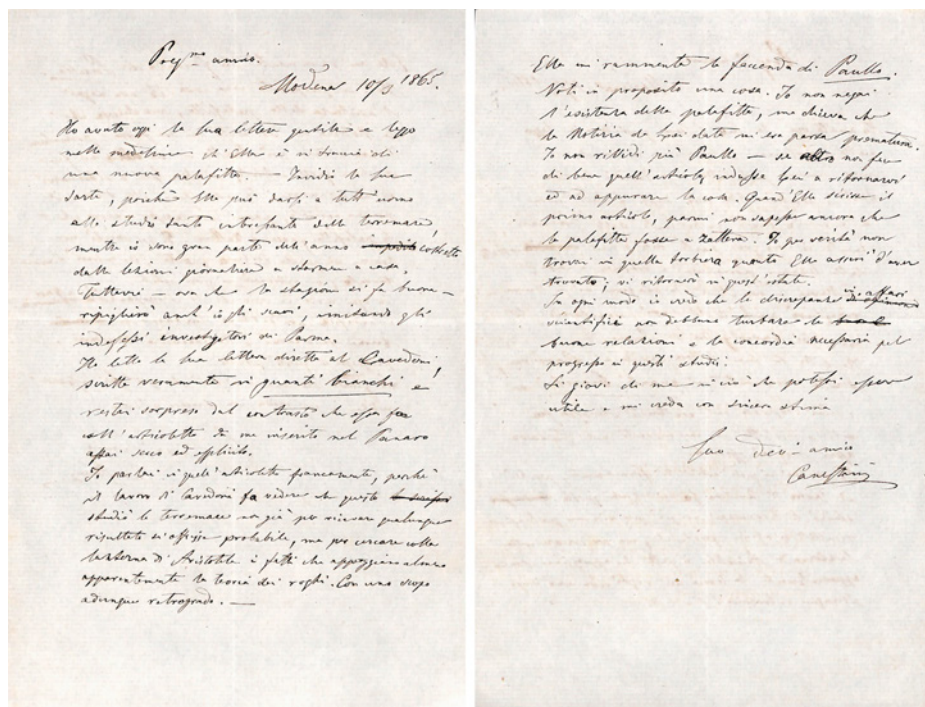 Preg.mo amico.
Modena 10/3 1865.
Ho avuto oggi la sua lettera gentile e leggo
nella medesima ch'Ella è in traccia di
una nuova palafitta. — Invidio la sua
sorte, poichè Ella può darsi a tutt'uomo
allo studio tanto interessante delle terremare,
mentre io sono gran parte dell'anno costretto
dalle lezioni giornaliere a starmene a casa.
Tuttavia — ora che la stagione si fa buona —
ripiglierò anch'io gli scavi, imitando gli
indefessi investigatori di Parma.
Ho letto la sua lettera diretta al Cavedoni,
scritta veramente in guanti bianchi e
restai sorpreso dal contrasto che essa fa
coll'articoletto da me inserito nel Panaro
assai secco ed esplicito.
Io parlai in quell'articoletto francamente, perchè
il lavoro di Cavedoni fa vedere che questo
studiò le terremare non già per ricavare qualunque
risultato ei fosse probabile, ma per cercare colla
lanterna d'Aristotele i fatti che appoggiano almeno
apparentemente la teoria dei roghi. Con uno scopo
adunque retrogrado. —
Ella mi rammenta la faccenda di Paullo.
Noti in proposito una cosa. Io non negai
l'esistenza della palafitta, ma diceva che
la Notizia da Loro data mi era parsa prematura.
Io non rividi più Paullo — se altro non fece
di bene quell'articolo, indusse Loro a ritornarvi
ed ad appurare la cosa. Quand'Ella scrisse il
primo articolo, parmi non sapesse ancora che
la palafitta fosse a Zattera. Io per verità non
trovai in quella torbiera quanto Ella assicurò d'aver
trovato; vi ritornerò in quest'estate.
In ogni modo io credo che le discrepanze in affari
scientifici non debbano turbare le
buone relazioni e la concordia necessaria pel
progresso di questi studii.
Si giovi di me in ciò che potessi essere
utile e mi creda con sincera stima
Suo dev. amico
Canestrini